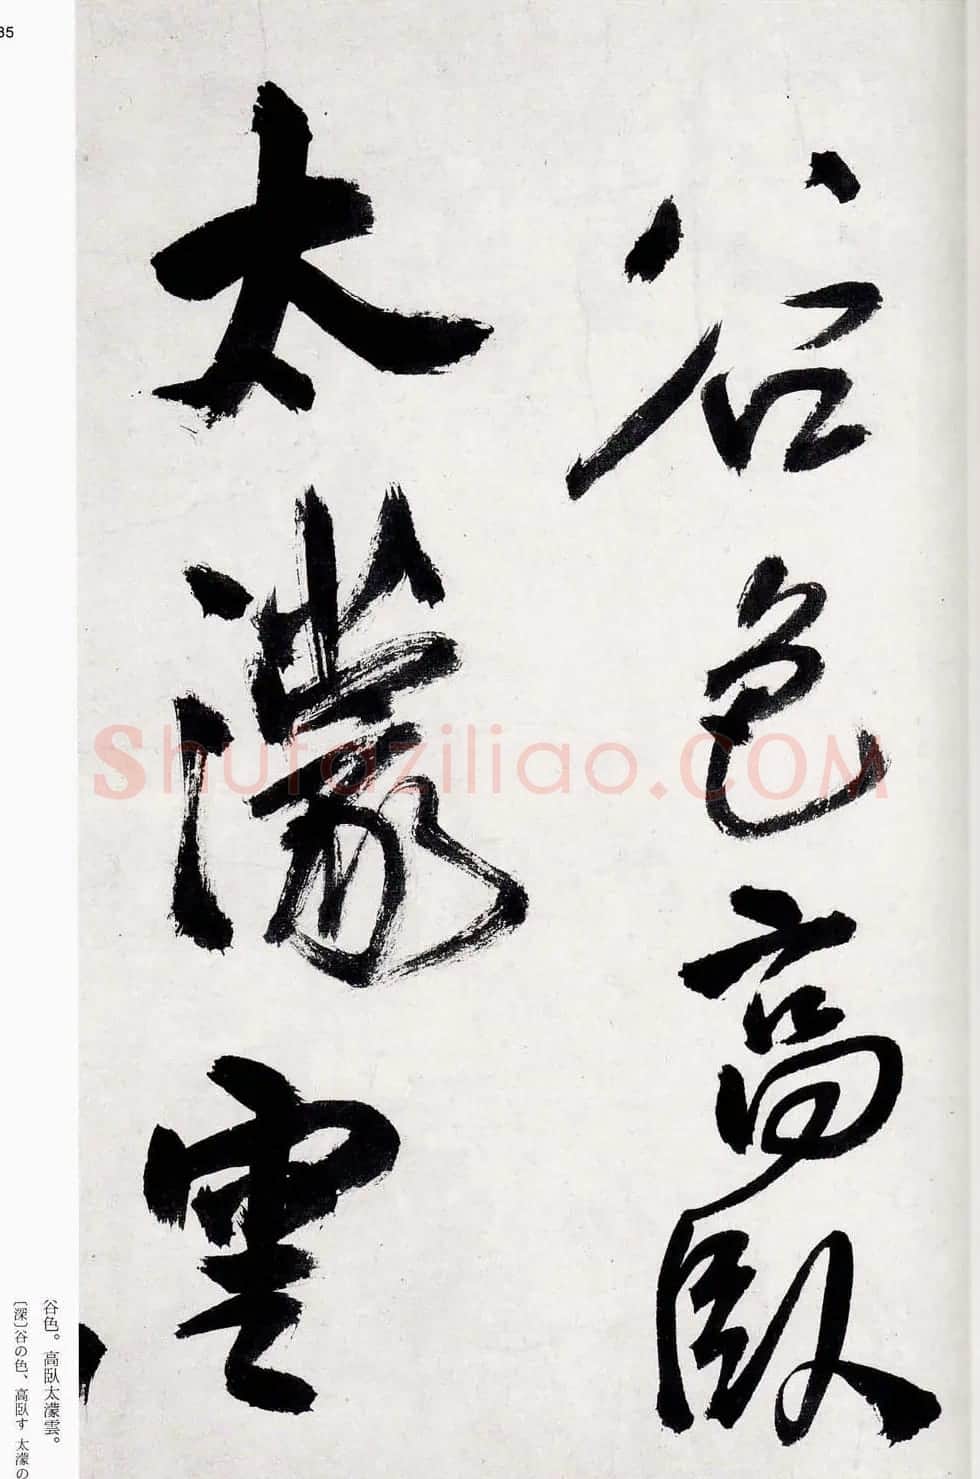 谷色高臥
太濛雲
谷色。高臥太濛雲。
〔深〕谷の色、高臥す 太濛の
35
Shufaziliao.COM